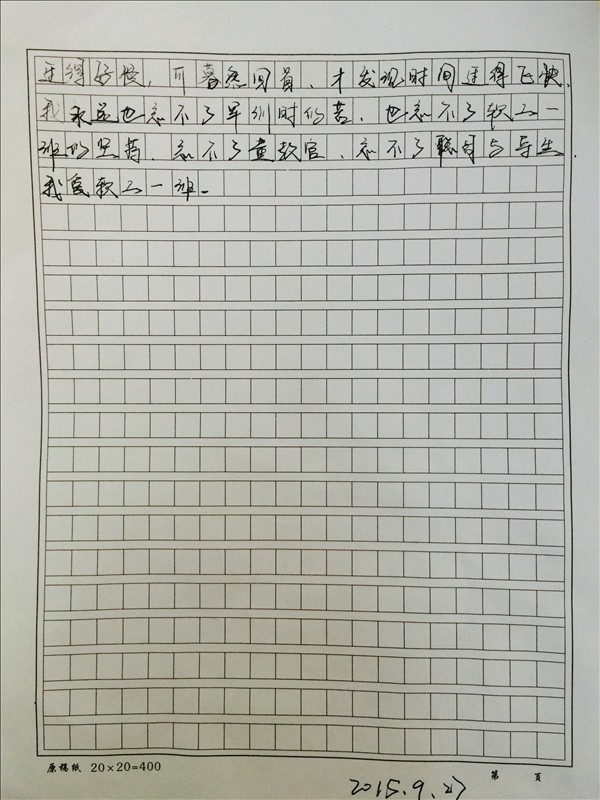 过得好慢，可暮然回首，才发现时间过得飞快，
我永远也忘不了军训时的苦，也忘不了软工一
班的坚持，忘不了董教官、忘不了
我爱软工一班。
原稿纸 20×20=400
第 页
2015.9.27